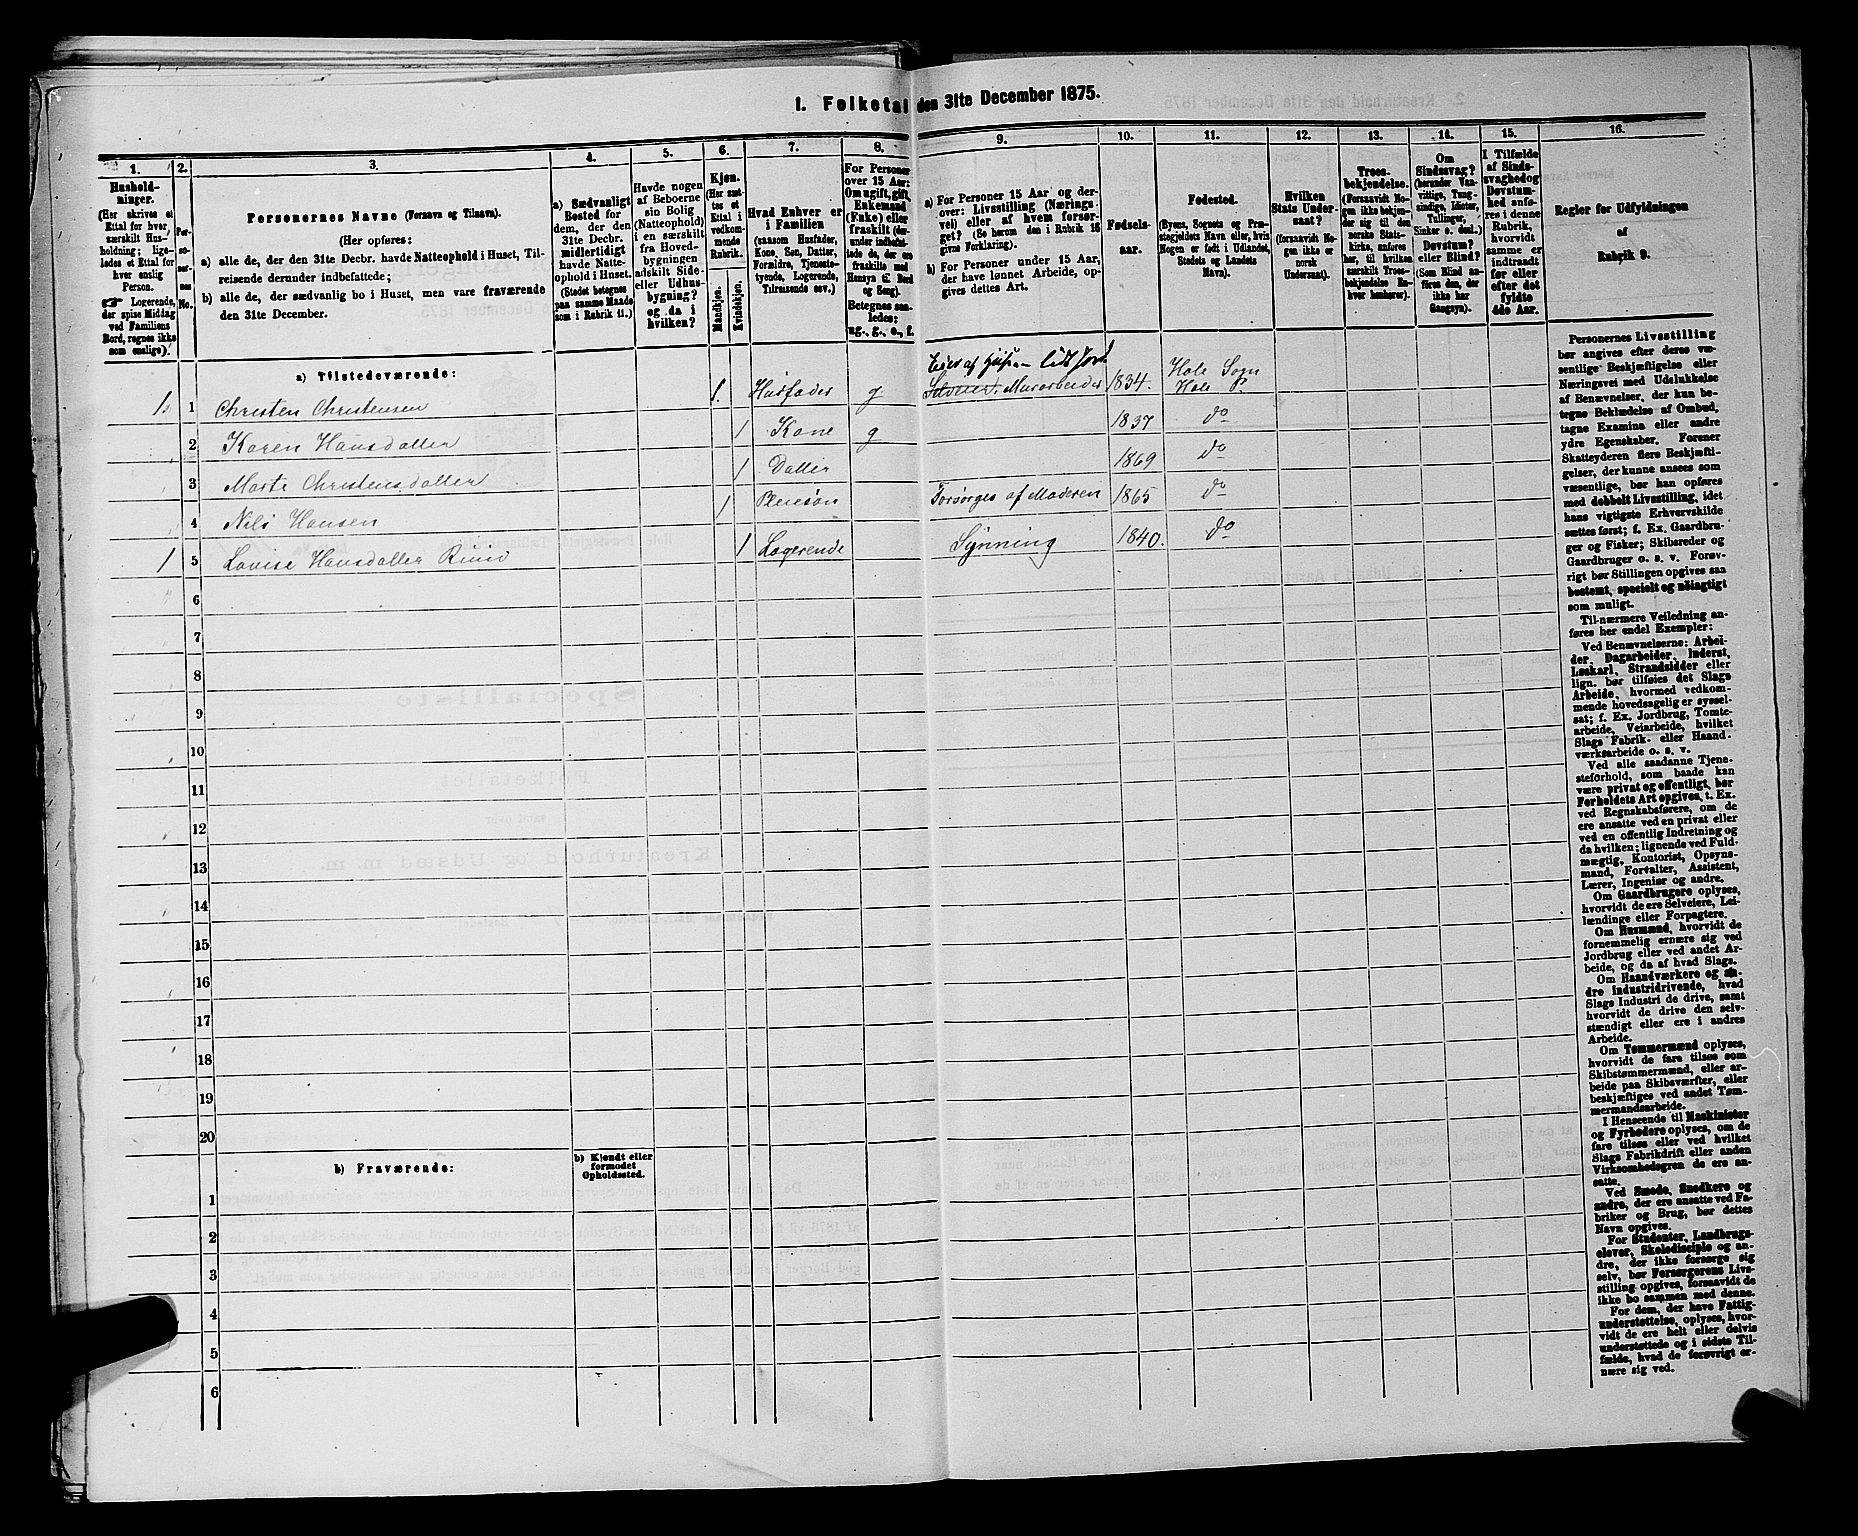 1. Folketal den 31te December 1875.
1. 2. 3. 4. 5. 6. 7. 8. 9. 10. 11. 12. 13. 14. 15. 16.
Hushold-
ninger.
(Her skrives et
Ettal for hver
særskilt Hus-
holdning; lige-
ledes et Ettal for
hver enslig
Person.
☛ Logerende,
der spise Middag
ved Familiens
Bord, regnes ikke
som enslige).
Per-
so-
ner-
nes
No.
Personernes Navne (Fornavn og Tilnavn).
(Her opføres:
a) alle de, der den 31te Decbr. havde Natteophold i Huset, Til-
reisende derunder indbefattede;
b) alle de, der sædvanlig bo i Huset, men vare fraværende
den 31te December.
a) Sædvanligt
Bosted for
dem, der den
31te Decbr.
midlertidigt
havde Natte-
ophold i Huset.
(Stedet betegnes
paa samme Maade
som i Rubrik 11.)
Havde nogen
af Beboerne
sin Bolig
(Natteophold)
i en særskilt
fra Hoved-
bygningen
adskilt Side-
eller Udhus-
bygning?
og da i
hvilken?
Kjøn.
(Her sæt-
tes et
Ettal i
vedkom-
mende
Rubrik.
Mandkjøn.
Kvindekjøn.
Hvad Enhver er
i Familien
(saasom Husfader,
Kone, Søn, Datter,
Forældre, Tjeneste-
tyende, Logerende,
Tilreisende osv.)
For Personer
over 15 Aar:
Om ugift, gift,
Enkemand
(Enke) eller
fraskilt (der-
under indbefat-
tede de, der ere
fraskilte med
Hensyn til Bord
og Seng).
Betegnes saa-
ledes:
ug., g., e., f.
a) For Personer 15 Aar og der-
over: Livsstilling (Nærings-
vei) eller af hvem forsør-
get? (Se herom den i Rubrik 16
givne Forklaring).
b) For Personer under 15 Aar,
der have lønnet Arbeide, op-
gives dettes Art.
Fødsels-
aar.
Fødested.
(Byens, Sognets og Præ-
stegjeldets Navn eller, hvis
Nogen er født i Udlandet,
Stedets og Landets
Navn).
Hvilken
Stats Under-
saat?
(forsaavidt No-
gen ikke er
norsk
Undersaat).
Troes-
bekjendelse.
(Forsaavidt No-
gen ikke bekjen-
der sig til den
norske Stats-
kirke, anføres
her, til hvilken
særskilt Troes-
bekjendelse En-
hver henhører).
Om
Sindssvag?
(herunder Van-
vittige, Tung-
sindige, Idioter,
Tullinger,
Sinker o. desl.)
Døvstum?
eller Blind?
(Som Blind an-
føres den, der
ikke har
Gangsyn).
I Tilfælde
af Sinds-
svaghed og
Døvstum-
hed anfø-
res i denne
Rubrik,
hvorvidt
samme er
indtraadt
før eller
efter det
fyldte
4de Aar.
Regler for Udfyldningen
af
Rubrik 9.
a) Tilstedeværende:
Eier af Huset lidt Jord
1. 1 Christen Christensen 1. Husfader g Selveier. Murarbeider 1834. Hole Sogn Hole P
2 Karen Hansdatter 1 Kone g 1837 do
3 Marte Christensdatter 1 Datter 1869 do
4 Nils Hansen 1 Pleiesøn Forsørges af Moderen 1865 do
1 5 Lovise Hansdatter 1 Logerende Synning 1840. do
6
7
8
9
10
11
12
13
14
15
16
17
18
19
20
b) Fraværende:
b) Kjendt eller
formodet
Opholdssted.
1
2
3
4
5
6
Personernes Livsstilling
bør angives efter deres væ-
sentlige Beskjæftigelse eller
Næringsvei med Udelukkelse
af Benævnelser, der kun be-
tegne Beklædelse af Ombud,
tagne Examina eller andre
ydre Egenskaber. Forener
Skatteyderen flere Beskjæfti-
gelser, der kunne ansees som
væsentlige, bør han opføres
med dobbelt Livsstilling, idet
hans vigtigste Erhvervskilde
sættes først; f. Ex. Gaardbru-
ger og Fisker; Skibsreder og
Gaardbruger o. s. v. Forøv-
rigt bør Stillingen opgives saa
bestemt, specielt og nøiagtigt
som muligt.
Til nærmere Veiledning an-
føres her endel Exempler:
Ved Benævnelserne: Arbei-
der, Dagarbeider, Inderst,
Løskarl, Strandsidder eller
lign. bør tilføies det Slags
Arbeide, hvormed vedkom-
mende hovedsagelig er syssel-
sat; f. Ex. Jordbrug, Tomte-
arbeide, Veiarbeide, hvilket
Slags Fabrik- eller Haand-
værksarbeide o. s. v.
Ved alle saadanne Tjene-
steforhold, som baade kan
være privat og offentligt, bør
Forholdets Art opgives, t. Ex.
ved Regnskabsførere, om de
ere ansatte ved en privat eller
ved en offentlig Indretning og
da hvilken; lignende ved Fuld-
mægtig, Kontorist, Opsyns-
mand, Forvalter, Assistent,
Lærer, Ingeniør og andre.
Om Gaardbrugere oplyses,
hvorvidt de ere Selveiere, Lei-
lændinge eller Forpagtere.
Om Husmænd, hvorvidt de
fornemmelig ernære sig ved
Jordbrug eller ved andet Ar-
beide, og da af hvad Slags.
Om Haandværkere og an-
dre Industridrivende, hvad
Slags Industri de drive, samt
hvorvidt de drive den selv-
stændigt eller ere i andres
Arbeide.
Om Tømmermænd oplyses,
hvorvidt de fare tilsøs som
Skibstømmermænd, eller ar-
beide paa Skibsværfter, eller
beskjæftiges ved andet Tøm-
mermandsarbeide.
I Henseende til Maskinister
og Fyrbødere oplyses, om de
fare tilsøs eller ved hvilket
Slags Fabrikdrift eller anden
Virksomhedsgren de ere an-
satte.
Ved Smede, Snedkere og
andre, der ere ansatte ved Fa-
briker og Brug, bør dettes
Navn opgives.
For Studenter, Landbrugs-
elever, Skoledisciple og an-
dre, der ikke forsørge sig
selv, bør Forsørgerens Livs-
stilling opgives, forsaavidt de
ikke bo sammen med denne.
For dem, der have Fattig-
understøttelse, oplyses, hvor-
vidt de ere helt eller delvis
understøttede og i sidste Til-
fælde, hvad de forøvrigt er-
nære sig ved.